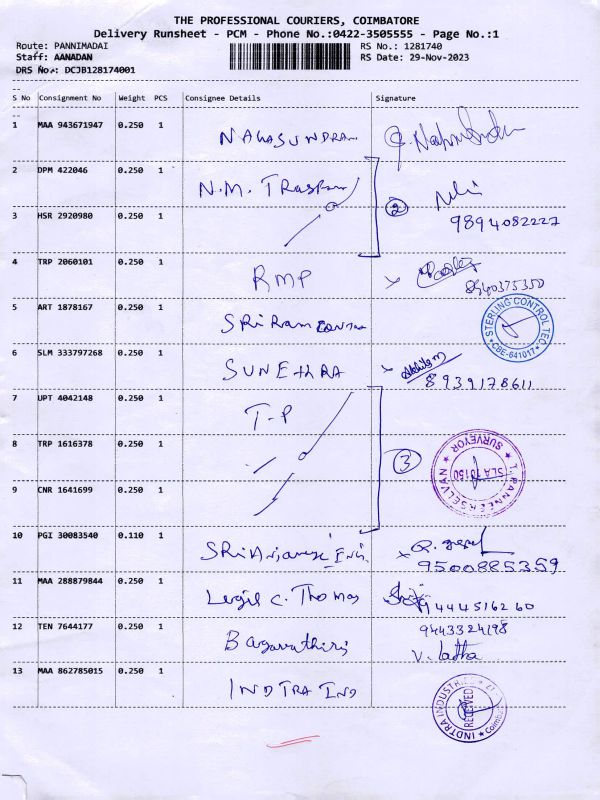 THE PROFESSIONAL COURIERS, COIMBATORE
Delivery Runsheet - PCM - Phone No.:0422-3505555 - Page No.:1
Route: PANNIMADAI RS No.: 1281740
Staff: AANADAN RS Date: 29-Nov-2023
DRS No.: DCJB128174001
S No Consignment No Weight PCS Consignee Details Signature
1 MAA 943671947 0.250 1
2 DPM 422046 0.250 1 N.M.
2
3 HSR 2920980 0.250 1 9894082227
4 TRP 2060101 0.250 1 RMP
8940375350
5 ART 1878167 0.250 1 SRi Ram
STERLING CONTROL TEC
CBE-641017
6 SLM 333797268 0.250 1 SUNEthRA
8939178611
7 UPT 4042148 0.250 1 T-P
8 TRP 1616378 0.250 1
3
T. PANNEERSELVAN
SLA 10150
SURVEYOR
9 CNR 1641699 0.250 1
10 PGI 30083540 0.110 1 SRi
9500885359
11 MAA 288879844 0.250 1 C. Thomas
9444516260
12 TEN 7644177 0.250 1 9443324198
V. latha
13 MAA 862785015 0.250 1 INDTRA IND
INDTRA INDUSTRIES
RECEIVED